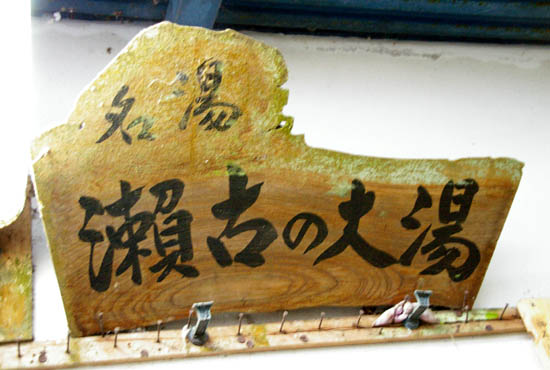 名湯
瀬古の大湯